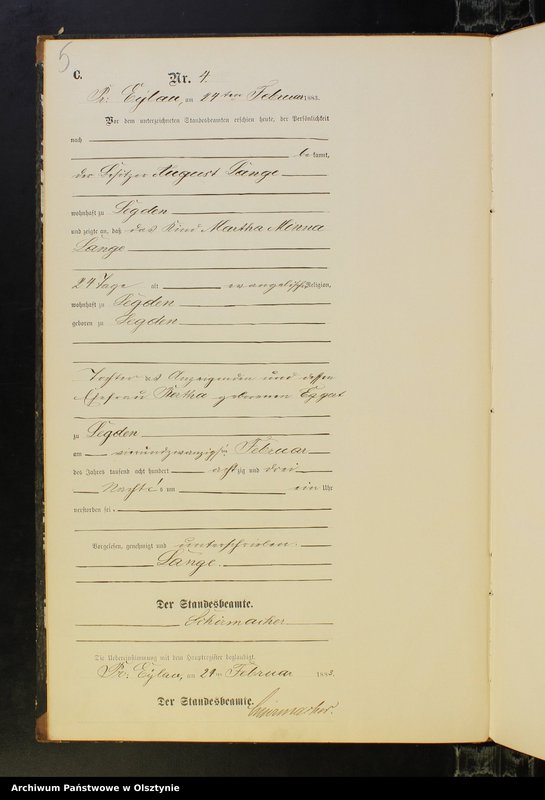 5
C.
Nr. 4.
Pr: Eylau, am 24ten Februar 1883.
Vor dem unterzeichneten Standesbeamten erschien heute, der Persönlichkeit
nach
be kannt,
der Besitzer August Lange
wohnhaft zu Segden
und zeigte an, daß das Kind Martha Minna
Lange
24 Tage alt evangelischer Religion,
wohnhaft zu Segden
geboren zu Segden
Tochter des Anzeigenden und dessen
Ehefrau Bertha geborenen Eggert
zu Segden
am vierundzwanzigsten Februar
des Jahres tausend acht hundert achtzig und drei
Nachts um ein Uhr
verstorben sei.
Vorgelesen, genehmigt und unterschrieben.
Lange.
Der Standesbeamte.
Schirmacher
Die Uebereinstimmung mit dem Hauptregister beglaubigt.
Pr: Eylau, am Februar 1883.
Der Standesbeamte.
Schirmacher.
Archiwum Państwowe w Olsztynie